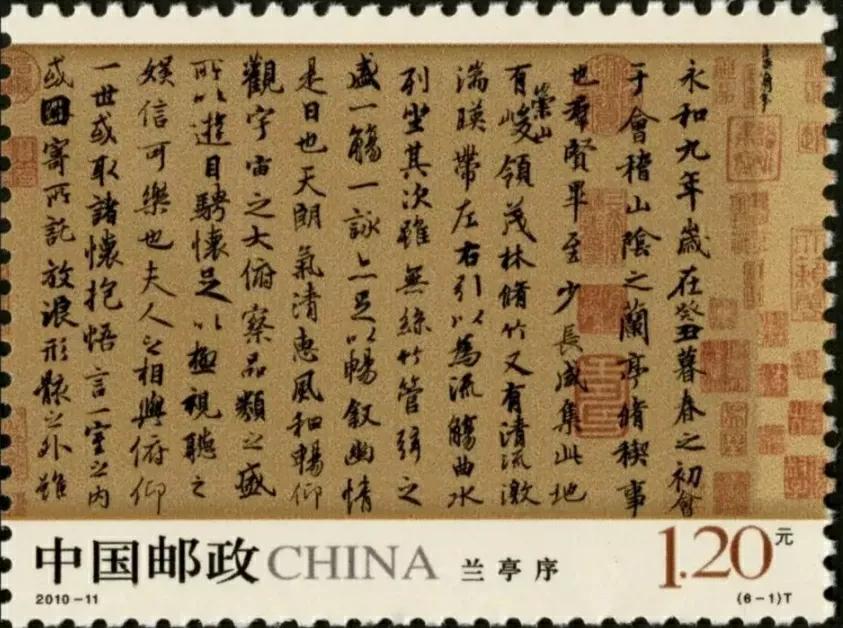 永和九年歲在癸丑暮春之初會
于會稽山陰之蘭亭脩稧事
也羣賢畢至少長咸集此地
有崇山峻領茂林脩竹又有清流激
湍暎帶左右引以為流觴曲水
列坐其次雖無絲竹管弦之
盛一觴一詠亦足以暢叙幽情
是日也天朗氣清惠風和暢仰
觀宇宙之大俯察品類之盛
所以遊目騁懷足以極視聽之
娛信可樂也夫人之相與俯仰
一世或取諸懷抱悟言一室之內
或因寄所託放浪形骸之外雖
中国邮政 CHINA 兰亭序 1.20元
2010-11 (6-1)T